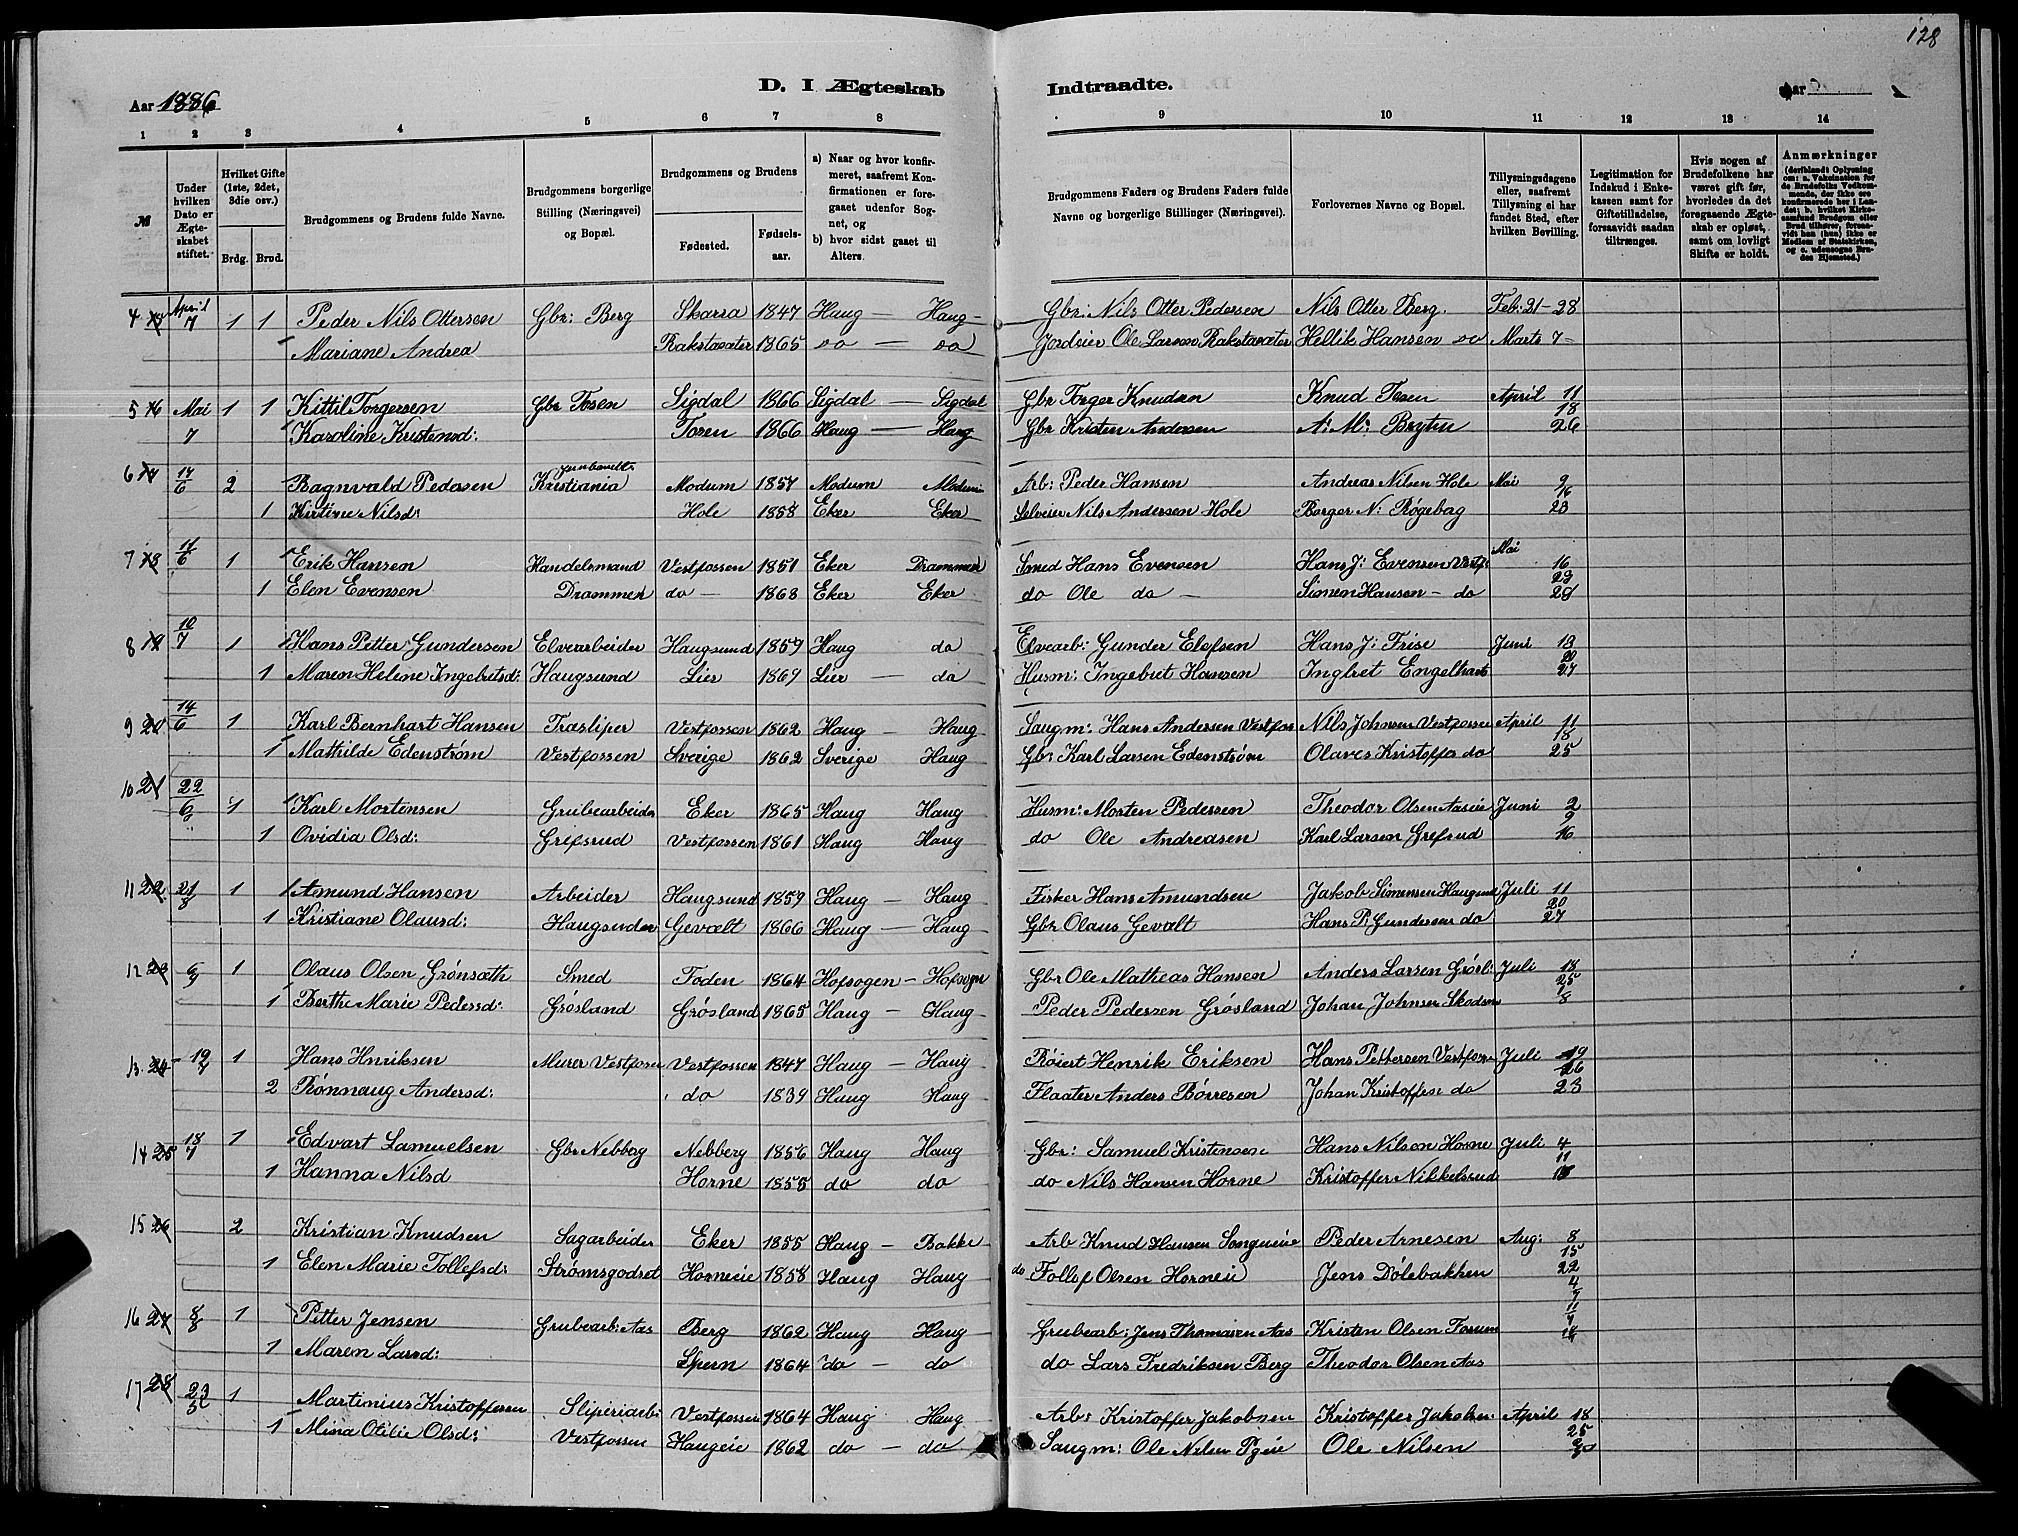 128
D. I Ægteskab Indtraadte.
Aar 1886
1 2 3 4 5 6 7 8 9 10 11 12 13 14
№
Under hvilken Dato er Ægteskabet stiftet.
Hvilket Gifte (1ste, 2det, 3die osv.)
Brdg. Brud.
Brudgommens og Brudens fulde Navne.
Brudgommens borgerlige Stilling (Næringsvei) og Bopæl.
Brudgommens og Brudens
Fødested.
Fødselsaar.
a) Naar og hvor konfirmeret, saafremt Konfirmationen er foregaaet udenfor Sognet, og
b) hvor sidst gaaet til Alters.
Brudgommens Faders og Brudens Faders fulde Navne og borgerlige Stillinger (Næringsvei).
Forlovernes Navne og Bopæl.
Tillysningsdagene eller, saafremt Tillysning ei har fundet Sted, efter hvilken Bevilling.
Legitimation for Indskud i Enkekassen samt for Giftetilladelse, forsaavidt saadan tiltrænges.
Hvis nogen af Brudefolkene har været gift før, hvorledes da det foregaaende Ægteskab er opløst, samt om lovligt Skifte er holdt.
Anmærkninger (deriblandt Oplysning om: a. Vaksination for de Brudefolks Vedkommende, der ikke ere konfirmerede her i Landet; b. hvilket Kirkesamfund Brudgom eller Brud tilhører, forsaavidt han (hun) ikke er Medlem af Statskirken, og c. udensogns Brudes Hjemsted.)
4 April 7 1 1 Peder Nils Ottersen Gbr: Berg Skarra 1847 Haug — Haug Gbr: Nils Otter Pedersen Nils Otter Berg. Feb: 21-28
Mariane Andrea Rakstasæter 1865 do — do Jordeier Ole Larsen Rakstasæter Hellik Hansen do Marts 7
5 16 Mai 1 1 Kittil Torgersen Gbr Tosen Sigdal 1866 Sigdal — Sigdal Gbr Torger Knudsn Knud Tosen April 11
18
7 Karoline Kristensd: Toren 1866 Haug — Haug Gbr Kristen Andersen A. M. Bryten 26
6 17 17/6 2 Bagnvald Pedersen Kristiania Modum 1857 Modum Modum Arb: Peder Hansen Andreas Nilsen Hole Mai 9
16
1 Kirstine Nilsd: Hole 1858 Eker Eker Selveier Nils Andersen Hole Borger N: Røgebag 23
7 18 11/6 1 Erik Hansen Handelsmand Vestfossen 1851 Eker Drammen Smed Hans Evensen Hans J: Evensen Vestf. Mai 16
23
1 Elen Evensen Drammen do — 1868 Eker Eker do Ole do — Simen Hansen — do 29
8 19 10/7 1 Hans Petter Gundersen Elvearbeider Haugsund 1859 Haug do Elvearb: Gunder Elefsen Hans J: Frise Juni 13
20
1 Maren Helene Ingebretsd: Haugsund Lier 1869 Lier — do Husm: Ingebret Hansen Inglret Engelhart 27
9 20 14/6 1 Karl Bernhart Hansen Træsliper Vestfossen 1862 Haug — Haug Saugm: Hans Andersen Vestfos Nils Johnsen Vestfossen April 11
18
1 Mathilde Edenstrøm Vestfossen Sverige 1862 Sverige Haug Gbr: Karl Larsen Edenstrøm Olaves Kristoffer do 25
10 21 22/6 1 Karl Mortensen Grubearbeider Eker 1865 Haug Haug Husm: Morten Pedersen Theodor Olsen Aaseie Juni 2
9
1 Ovidia Olsd: Grefsrud Vestfossen 1861 Haug Haug do Ole Andreasen Karl Larsen Grefsrud 16
11 22 21/8 1 Amund Hansen Arbeider Haugsund 1859 Haug — Haug Fisker Hans Amundsen Jakob Simensen Haugsund Juli 11
20
1 Kristiane Olausd: Haugsunden Gevælt 1866 Haug — Haug Gbr Olaus Gevælt Hans P: Gundersen do 27
12 23 6/9 1 Olaus Olsen Grønsæth Smed Foden 1864 Hofsogen — Hofsogn Gbr Ole Mathias Hansen Anders Larsen Grøsl: Juli 18
25
1 Berthe Marie Pedersd: Grøsland Grøsland 1865 Haug — Haug Peder Pedersen Grøsland Johan Johnsen Skodsm 1/8
13 24 19/7 1 Hans Henriksen Murer Vestfossen Vestfossen 1847 Haug — Haug Røiert Henrik Eriksen Hans Pettersen Vestfosse Juli 19
26
2 Rønnaug Andersd: do 1839 Haug Haug Flaater Anders Børresen Johan Kristoffsen do 23
14 25 18/7 1 Edvart Samuelsen Gbr Nebberg Nebberg 1856 Haug Haug Gbr: Samuel Kristensen Hans Nilsen Horne Juli 4
11
1 Hanna Nilsd Horne 1855 do do do Nils Hansen Horne Kristoffer Nikkelsrud 18
15 26 2 Kristian Knudsen Sagarbeider Eker 1855 Haug — Bakke Arb Knud Hansen Songneie Peder Arnesen Aug: 8
15
1 Elen Marie Tollefsd: Strømsgodset Horneie 1858 Haug Haug do Tollef Olsen Horneie Jens Dølebakken 22
16 27 8/8 1 Petter Jensen Grubearb: Aas Berg 1862 Haug Haug Grubearb: Jens Thomasen Aas Kristen Olsen Forum 4/7 11/7 18
1 Maren Larsd: Spern 1864 do — do do Lars Fredriksen Berg Theodor Olsen Aas
17 28 23/5 1 Martinius Kristoffersen Sliperiarb: Vestfossen 1864 Haug Haug Arb: Kristoffer Jakobsen Kristoffer Jakobsen April 18
25
1 Mina Otilie Olsd: Vestfossen Haugeie 1862 do — do Saugm: Ole Nilsen Ole Nilsen